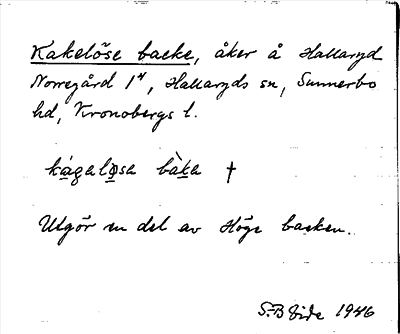 Kakelöse backe, åker å Hallaryd
Norregård 1⁴, Hallaryds sn, Sunnerbo
hd, Kronobergs l.
kágalǫsa bàka †
Utgör en del av Höge backen.
S.-B 1946